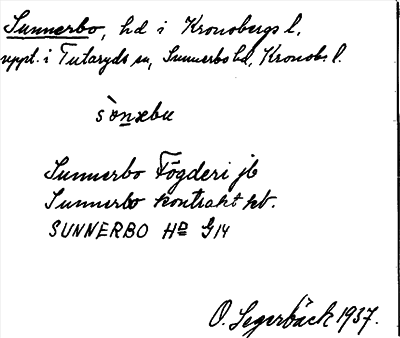 Sunnerbo, hd i Kronobergs l.
uppt. i Tutaryds sn, Sunnerbo hd, Kronobs l.
sònæbu
Sunnerbo Fögderi jb
Sunnerbo kontrakt kt.
SUNNERBO HD G14
O. Segerbäck 1937.